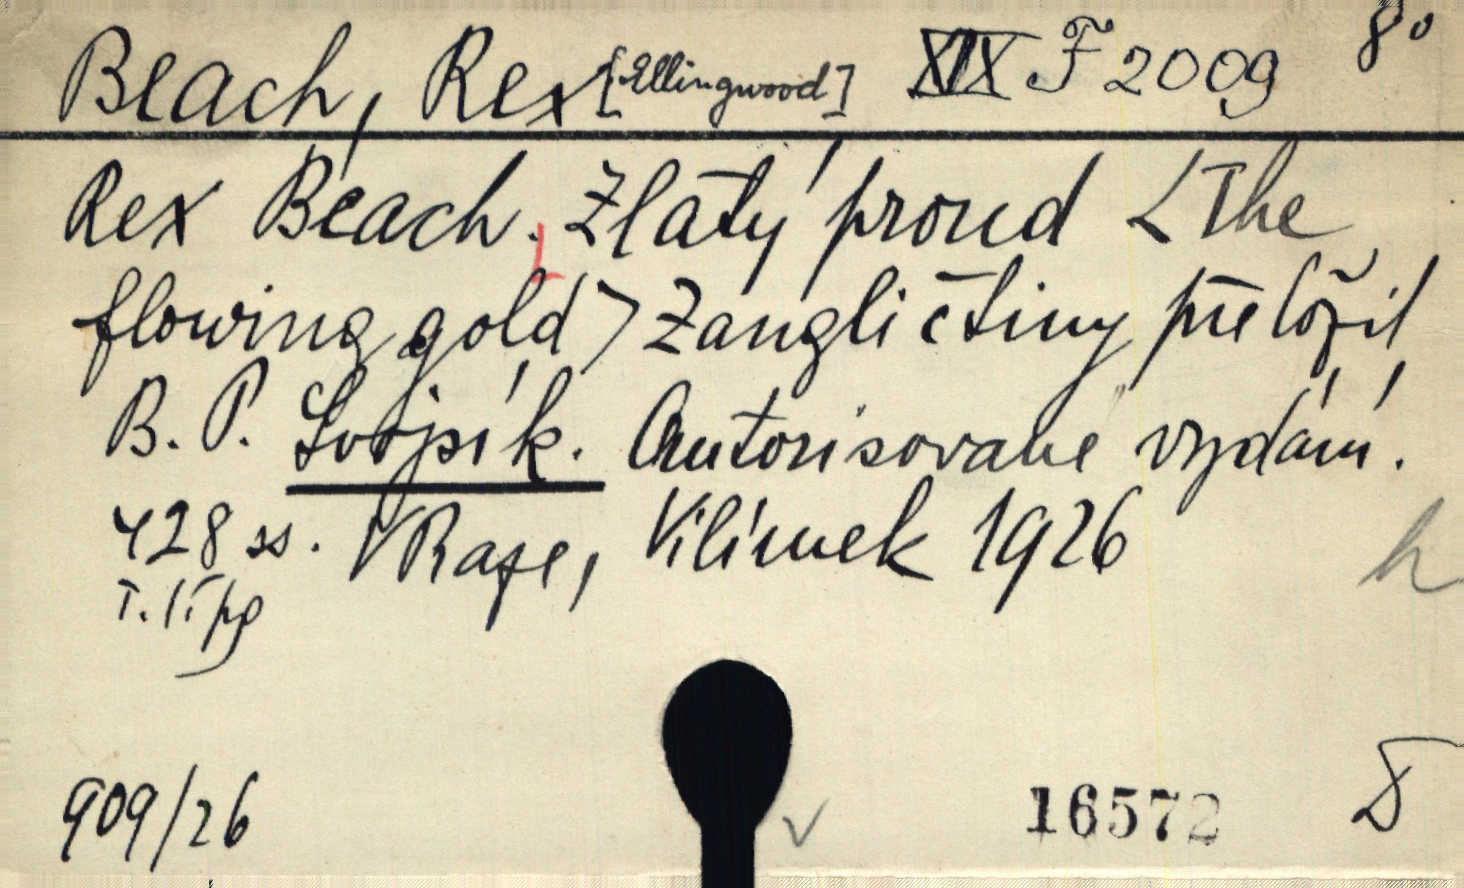 Beach, Rex [Ellingwood] XIX F 2009 8°
Rex Beach. Zlatý proud <The
flowing gold> Z angličtiny přeložil
B. P. Svojsík. Autorisované vydání.
428 ss. V Praze, Vilímek 1926
T. líp
h
909/26
16572